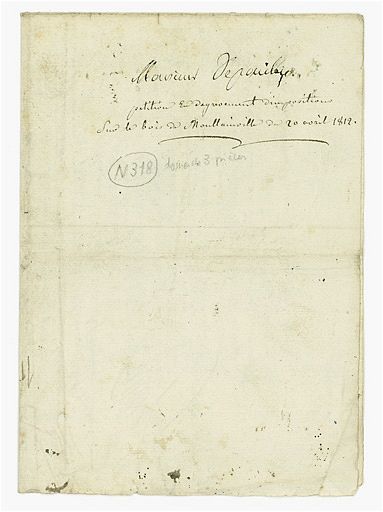 Monsieur Depouilly.
petition en degrevement d'impositions
Sur le bois de Moullainville du 20 avril 1812.
N 318 dossier de 3 pièces